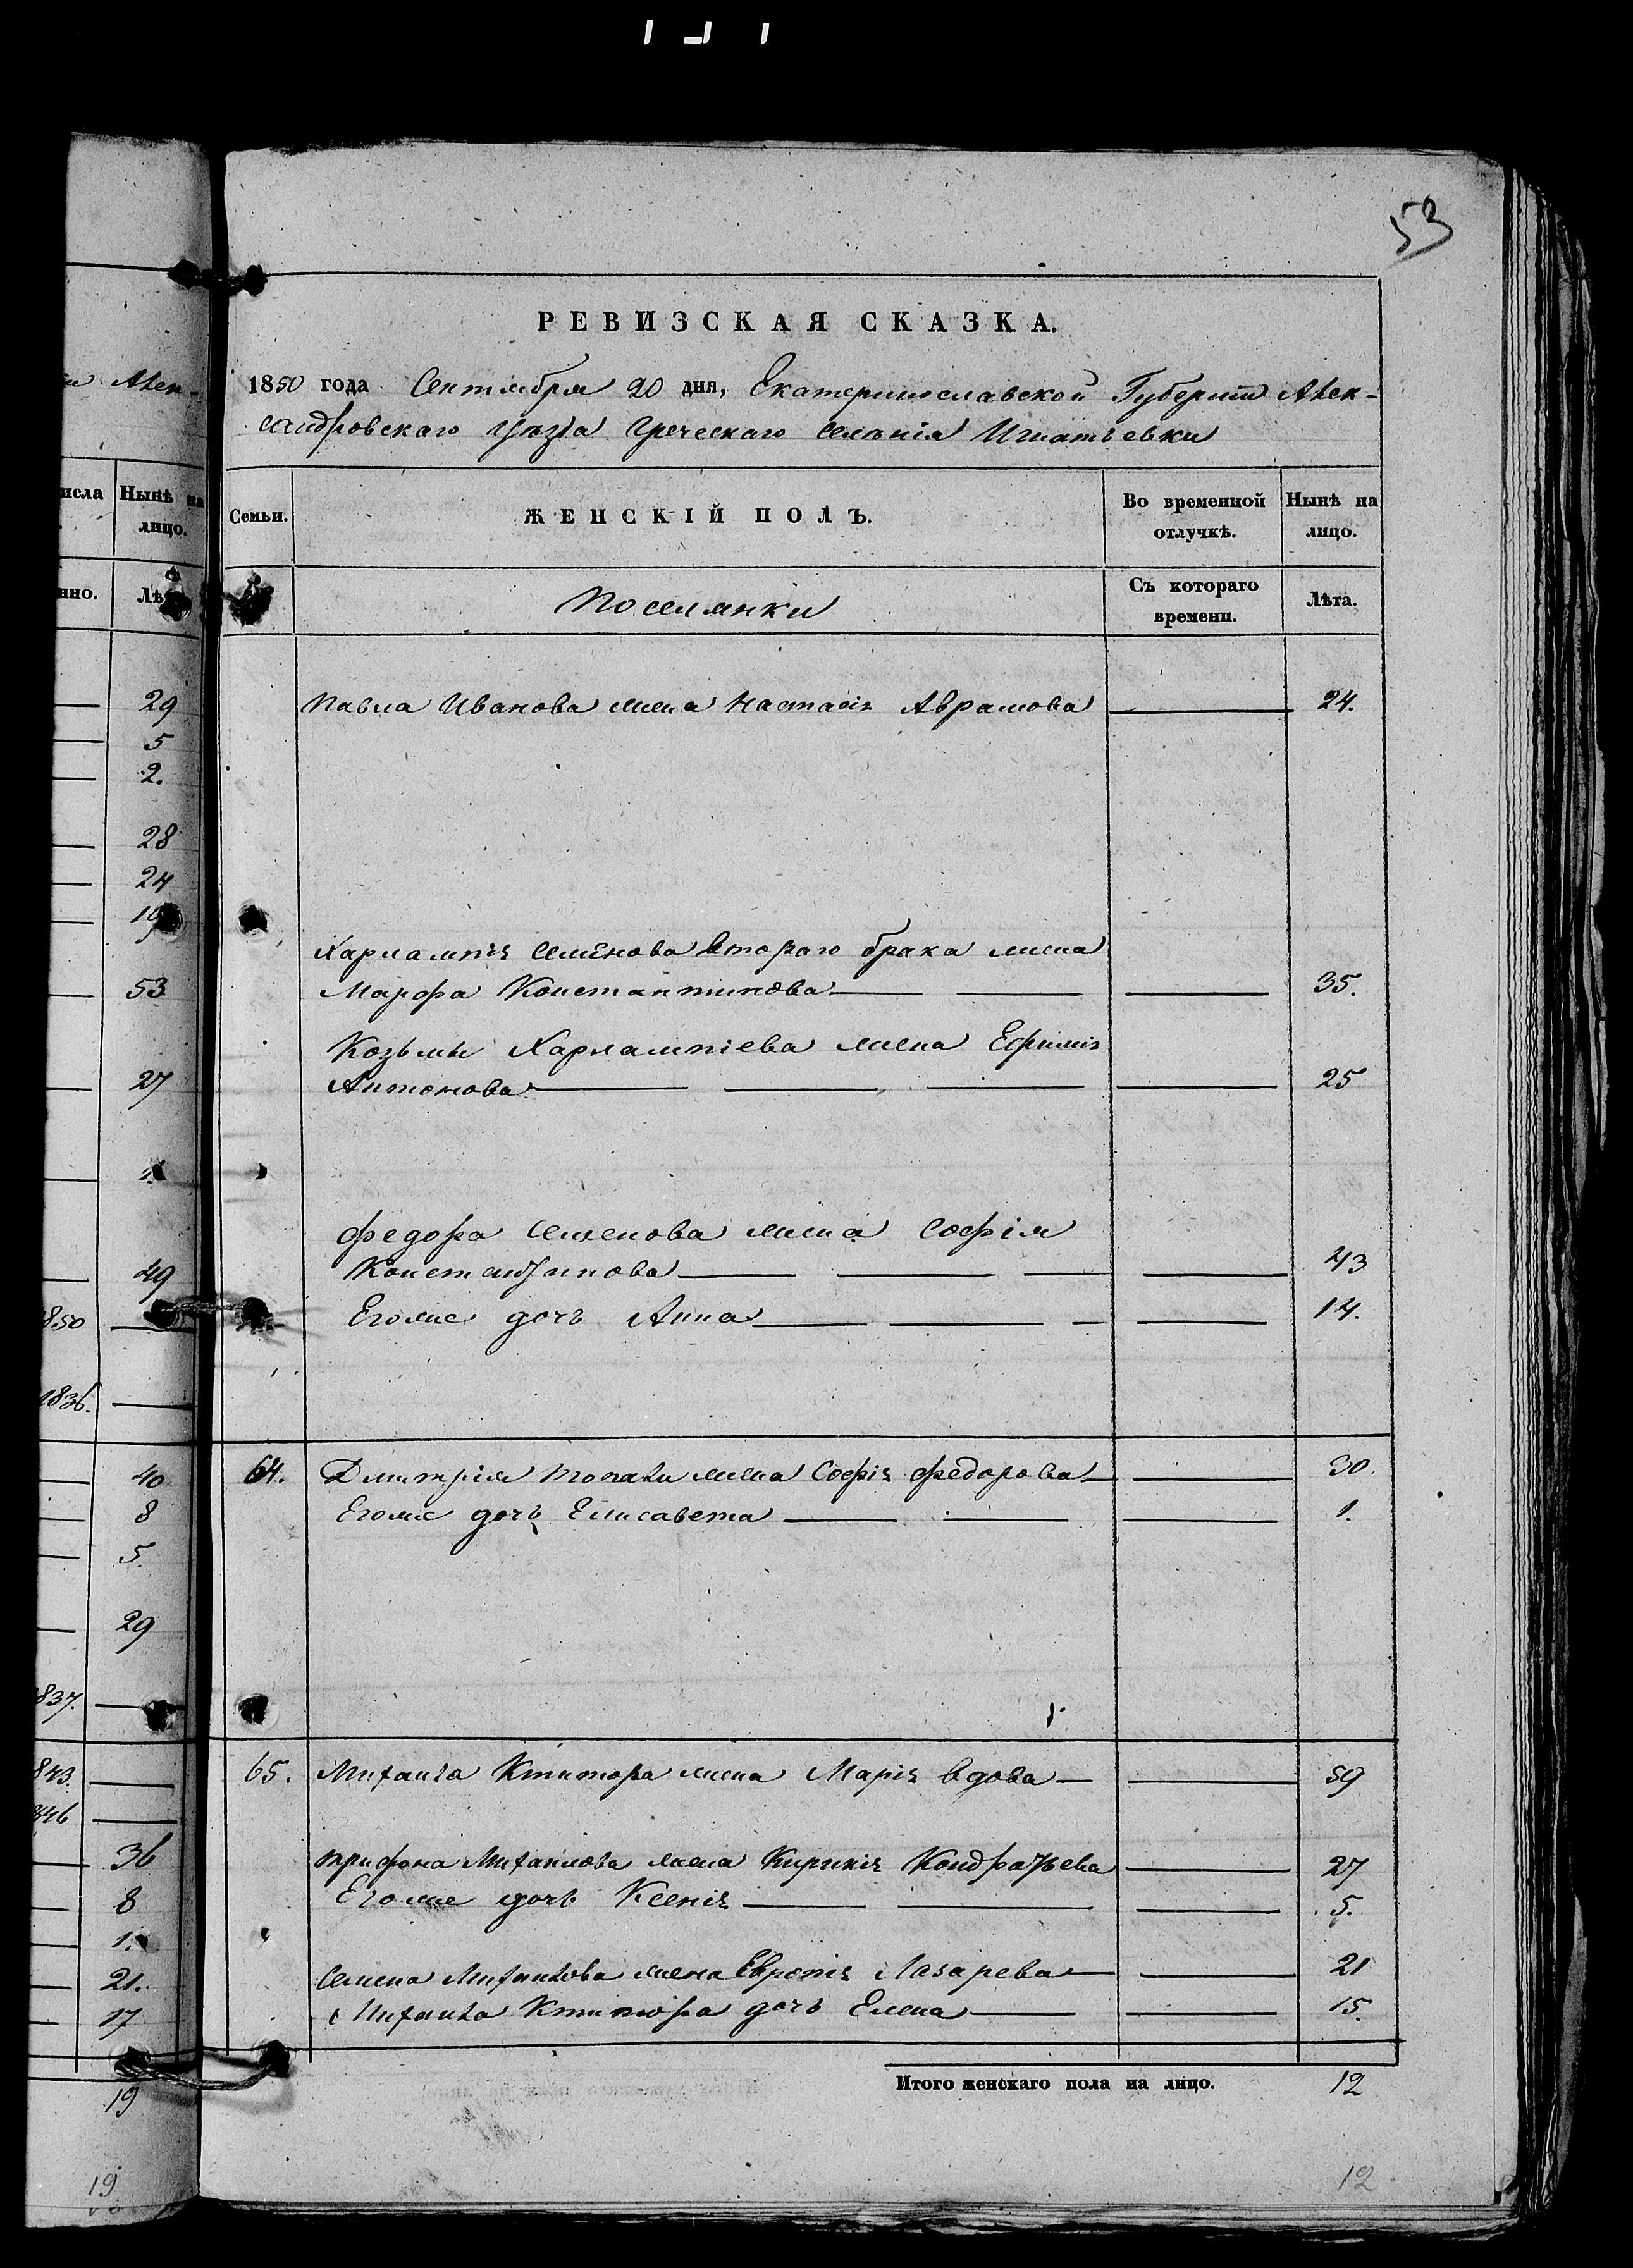 53
РЕВИЗСКАЯ СКАЗКА.
1850 года Сентября 20 дня, Екатеринославской Губернии Алек-
сандровскаго уѣзда Греческаго селенія Игнатьевки
Семьи. ЖЕНСКІЙ ПОЛЪ. Во временной отлучкѣ. Нынѣ на лицо.
Поселянки Съ котораго времени. Лѣта.
Павла Иванова жена Настасія Аврамова 24.
Харлампія Семенова втораго брака жена
Марфа Константинова 35.
Козьмы Харлампіева жена Ефимія
Антонова 25
Федора Семенова жена Софія
Константинова 43
Егоже дочь Анна 14.
64. Дмитрія Попали жена Софія Федорова 30.
Егоже дочь Елисавета 1.
65. Михаила Ктитора жена Марія вдова 59
Трифона Михаилова жена Кирикія Кондратьева 27
Егоже дочь Ксенія 5.
Семена Михаилова жена Европія Лазарева 21
Михаила Ктитора дочь Елена 15.
Итого женскаго пола на лицо. 12
12
Алек-
исла Нынѣ на
лицо.
нно. Лѣ
29
5
2.
28
24
19
53
27
1.
49
1850
1836.
40
8
5.
29
837.
843.
846
36
8
1.
21.
17
19
19